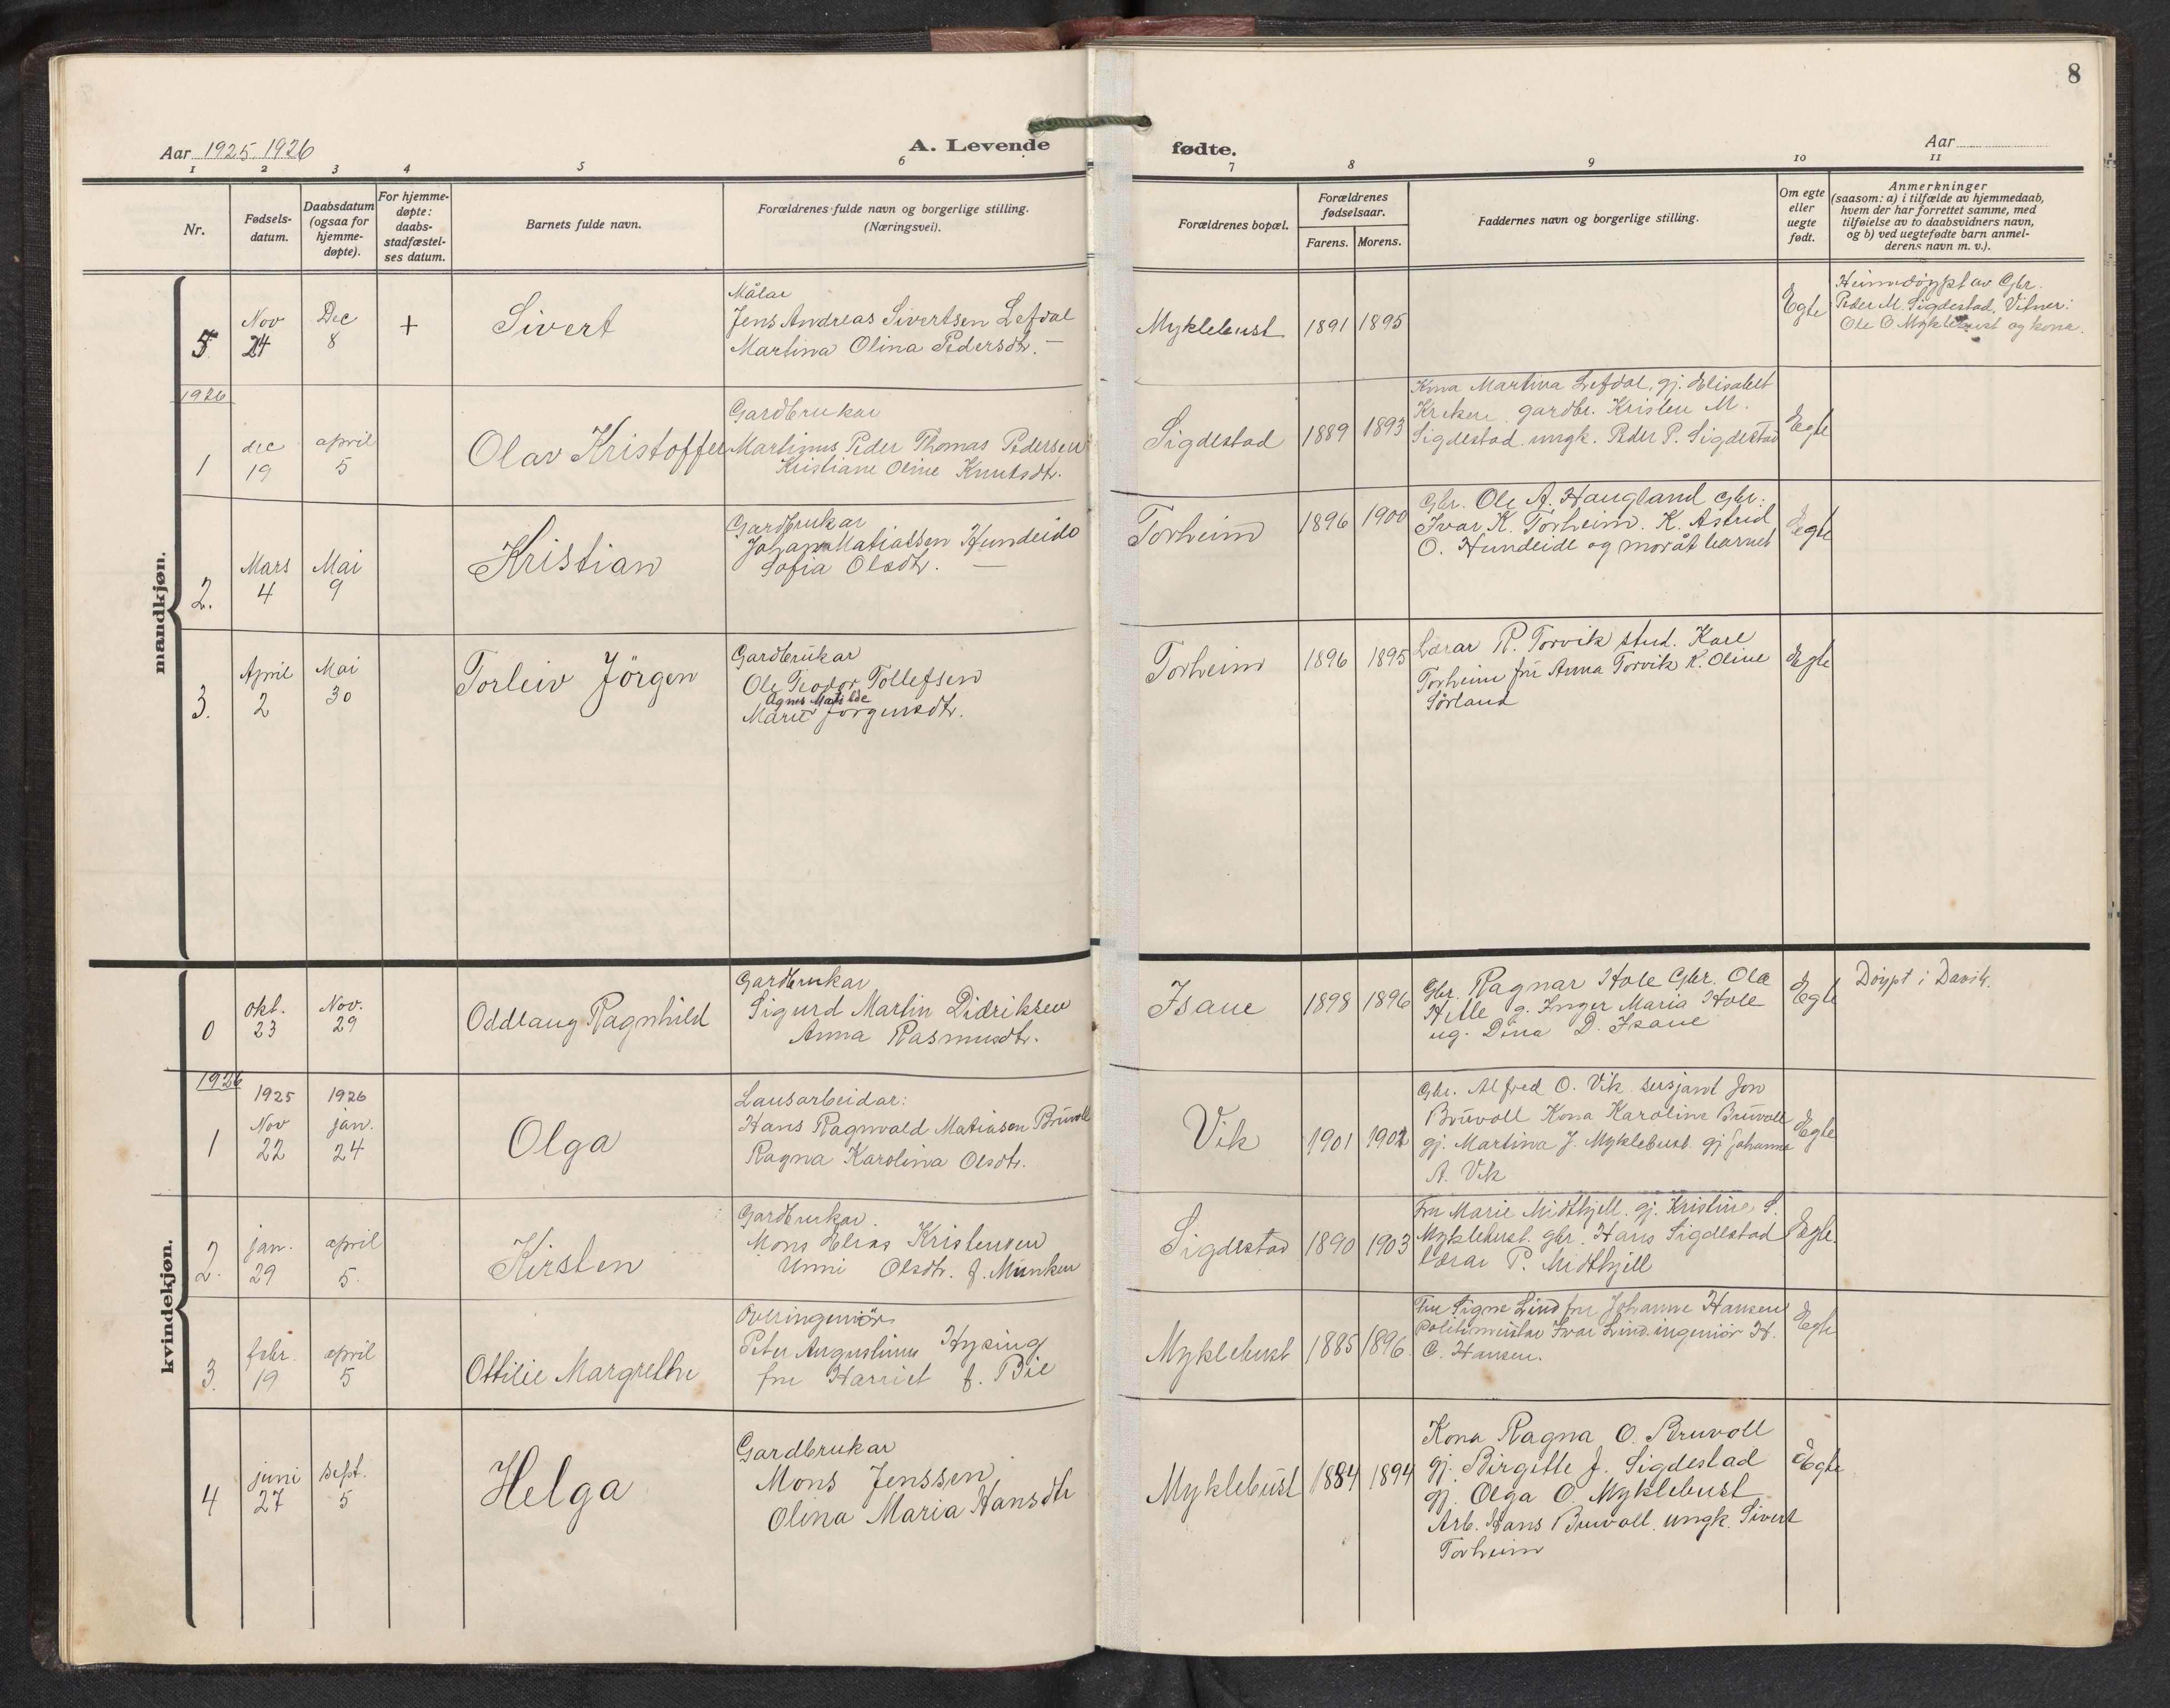 8
Aar 1925. 1926
A. Levende
fødte.
Aar
1 2 3 4 5 6 7 8 9 10 11
Nr.
Fødsels-
datum.
Daabsdatum
(ogsaa for
hjemme-
døpte).
For hjemme-
døpte:
daabs-
stadfæstel-
ses datum.
Barnets fulde navn.
Forældrenes fulde navn og borgerlige stilling.
(Næringsvei).
Forældrenes bopæl.
Forældrenes
fødselsaar.
Farens. Morens.
Faddernes navn og borgerlige stilling.
Om egte
eller
uegte
født.
Anmerkninger
(saasom: a) i tilfælde av hjemmedaab,
hvem der har forrettet samme, med
tilføielse av to daabsvidners navn,
og b) ved uegtefødte barn anmel-
derens navn m. v.).
mandkjøn.
5. Nov 24 Dec 8 + Sivert
Målar
Jens Andreas Sivertsen Lefdal
Martina Olina Pedersdtr. —
Myklebust 1891 1895
Egte
Heimedøypt av Gbr.
Peder M. Sigdestad. Vitner:
Ole O. Myklebust og kona.
1926
1 dec 19 april 5 Olav Kristoffer
Gardbrukar
Martinus Peder Thomas Pedersen
Kristiane Oline Knutsdtr.
Sigdestad 1889 1893
Kona Martina Lefdal, gj. Elisabet
gardbr. Kristen M.
Sigdestad. ungk. Peder P. Sigdestad
Egte
2. Mars 4 Mai 9 Kristian
Gardbrukar
Johan Matiassen Hundeide
Sofia Olsdtr. —
Torheim 1896 1900
Gbr. Ole A. Haugland Gbr.
Ivar K. Torheim. K. Astrid
O. Hundeide og mor åt barnet
Egte
3. April 2 Mai 30 Torleiv Jörgen
Gardbrukar
Ole Teodor Tollefsen
Agnes Matilde
Marie Jörgensdtr.
Torheim 1896 1895
Lærar R. Torvik stud. Karl
Torheim fru Anna Torvik K. Oline
Sørland
Egte
kvindekjøn.
0 Okt. 23 Nov. 29 Oddlaug Ragnhild
Gardbrukar
Sigurd Martin Didriksen
Anna Rasmusdtr.
Isane 1898 1896
Gbr. Ragnar Hole Gbr. Ole
Hille g. Inger Maria Hole
ug. Dina D. Isane
Egte
Döypt i Davik.
1926
1 1925 Nov 22 1926 jan. 24 Olga
Lausarbeidar:
Hans Ragnvald Matiasen Bruvoll
Ragna Karolina Olsdtr.
Vik 1901 1902
Gbr. Alfred O. Vik sersjant Jon
Bruvoll Kona Karoline Bruvoll
gj. Martina J. Myklebust. gj Johanne
A. Vik
Egte
2. jan. 29 april 5. Kirsten
Gardbrukar.
Mons Elias Kristensen
Unni Olsdtr. f. Munken
Sigdestad 1890 1903
Fru Marie Midthjell. gj. Kristine S.
Myklebust. gbr. Hans Sigdestad
lærar P. Midthjell
Egte.
3. febr. 19 april 5 Ottilie Margrethe
Overingeniör
Peter Augustinus Hysing
fru Harriet f. Bie
Myklebust 1885 1896.
Fru Signe Lind fru Johanne Hansen
Politimeister Ivar Lind. ingeniör H.
C. Hansen.
Egte
4 juni 27 sept. 5 Helga
Gardbrukar
Mons Jenssen
Olina Maria Hansdtr
Myklebust 1884 1894
Kona Ragna O. Bruvoll
gj. Birgitte J. Sigdestad
gj. Olga O. Myklebust
Arb. Hans Bruvoll. ungk. Sivert
Torheim
Egte